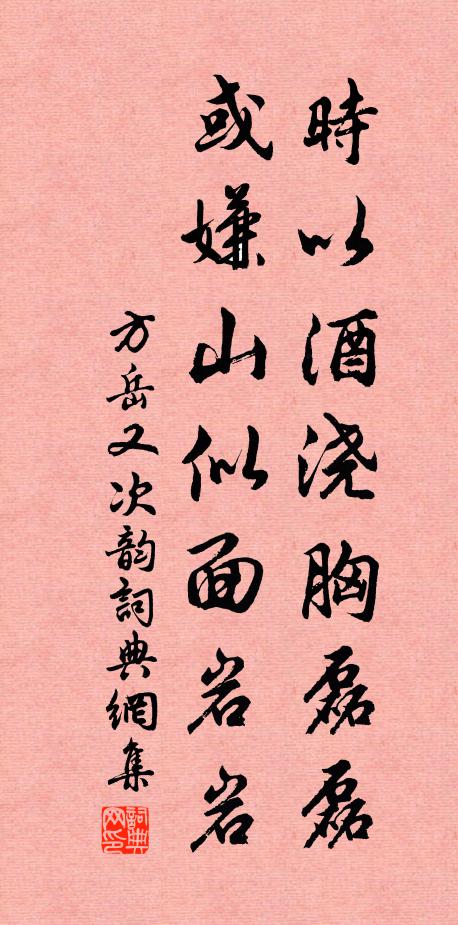 時以酒浇胸磊磊
或嫌山似面岩岩
方岳又次韵詞典網集
詞典网印